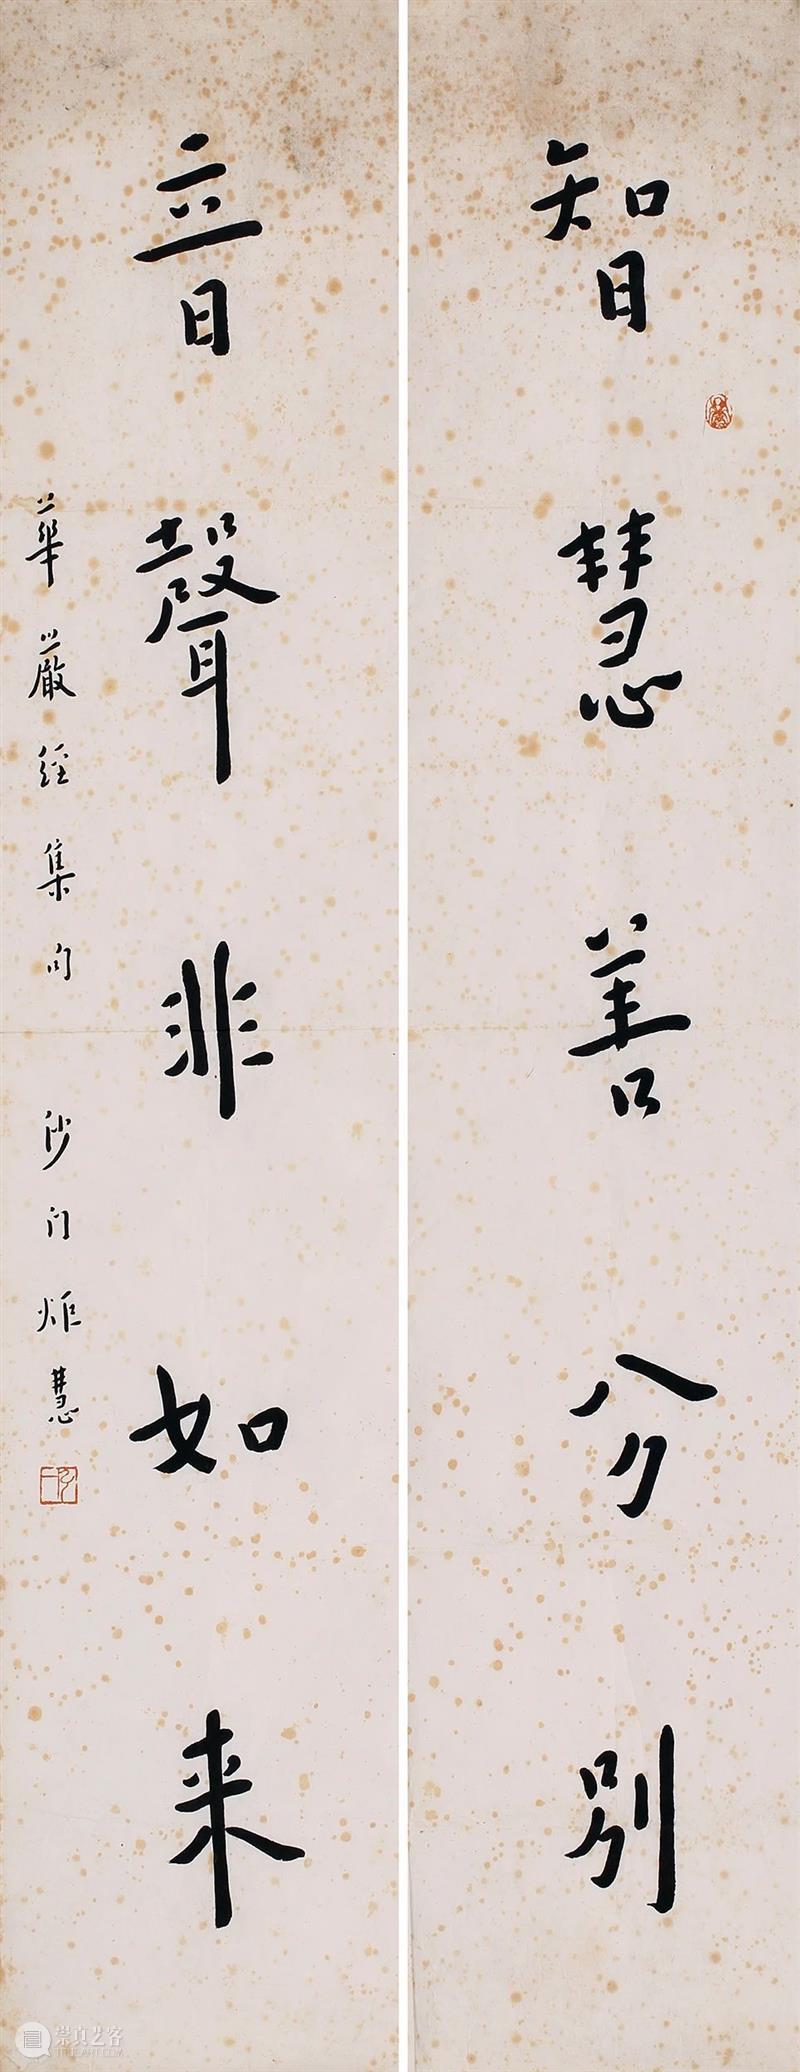 智慧善分別
音聲非如来
華嚴經集句
沙门炬慧
崇真艺客